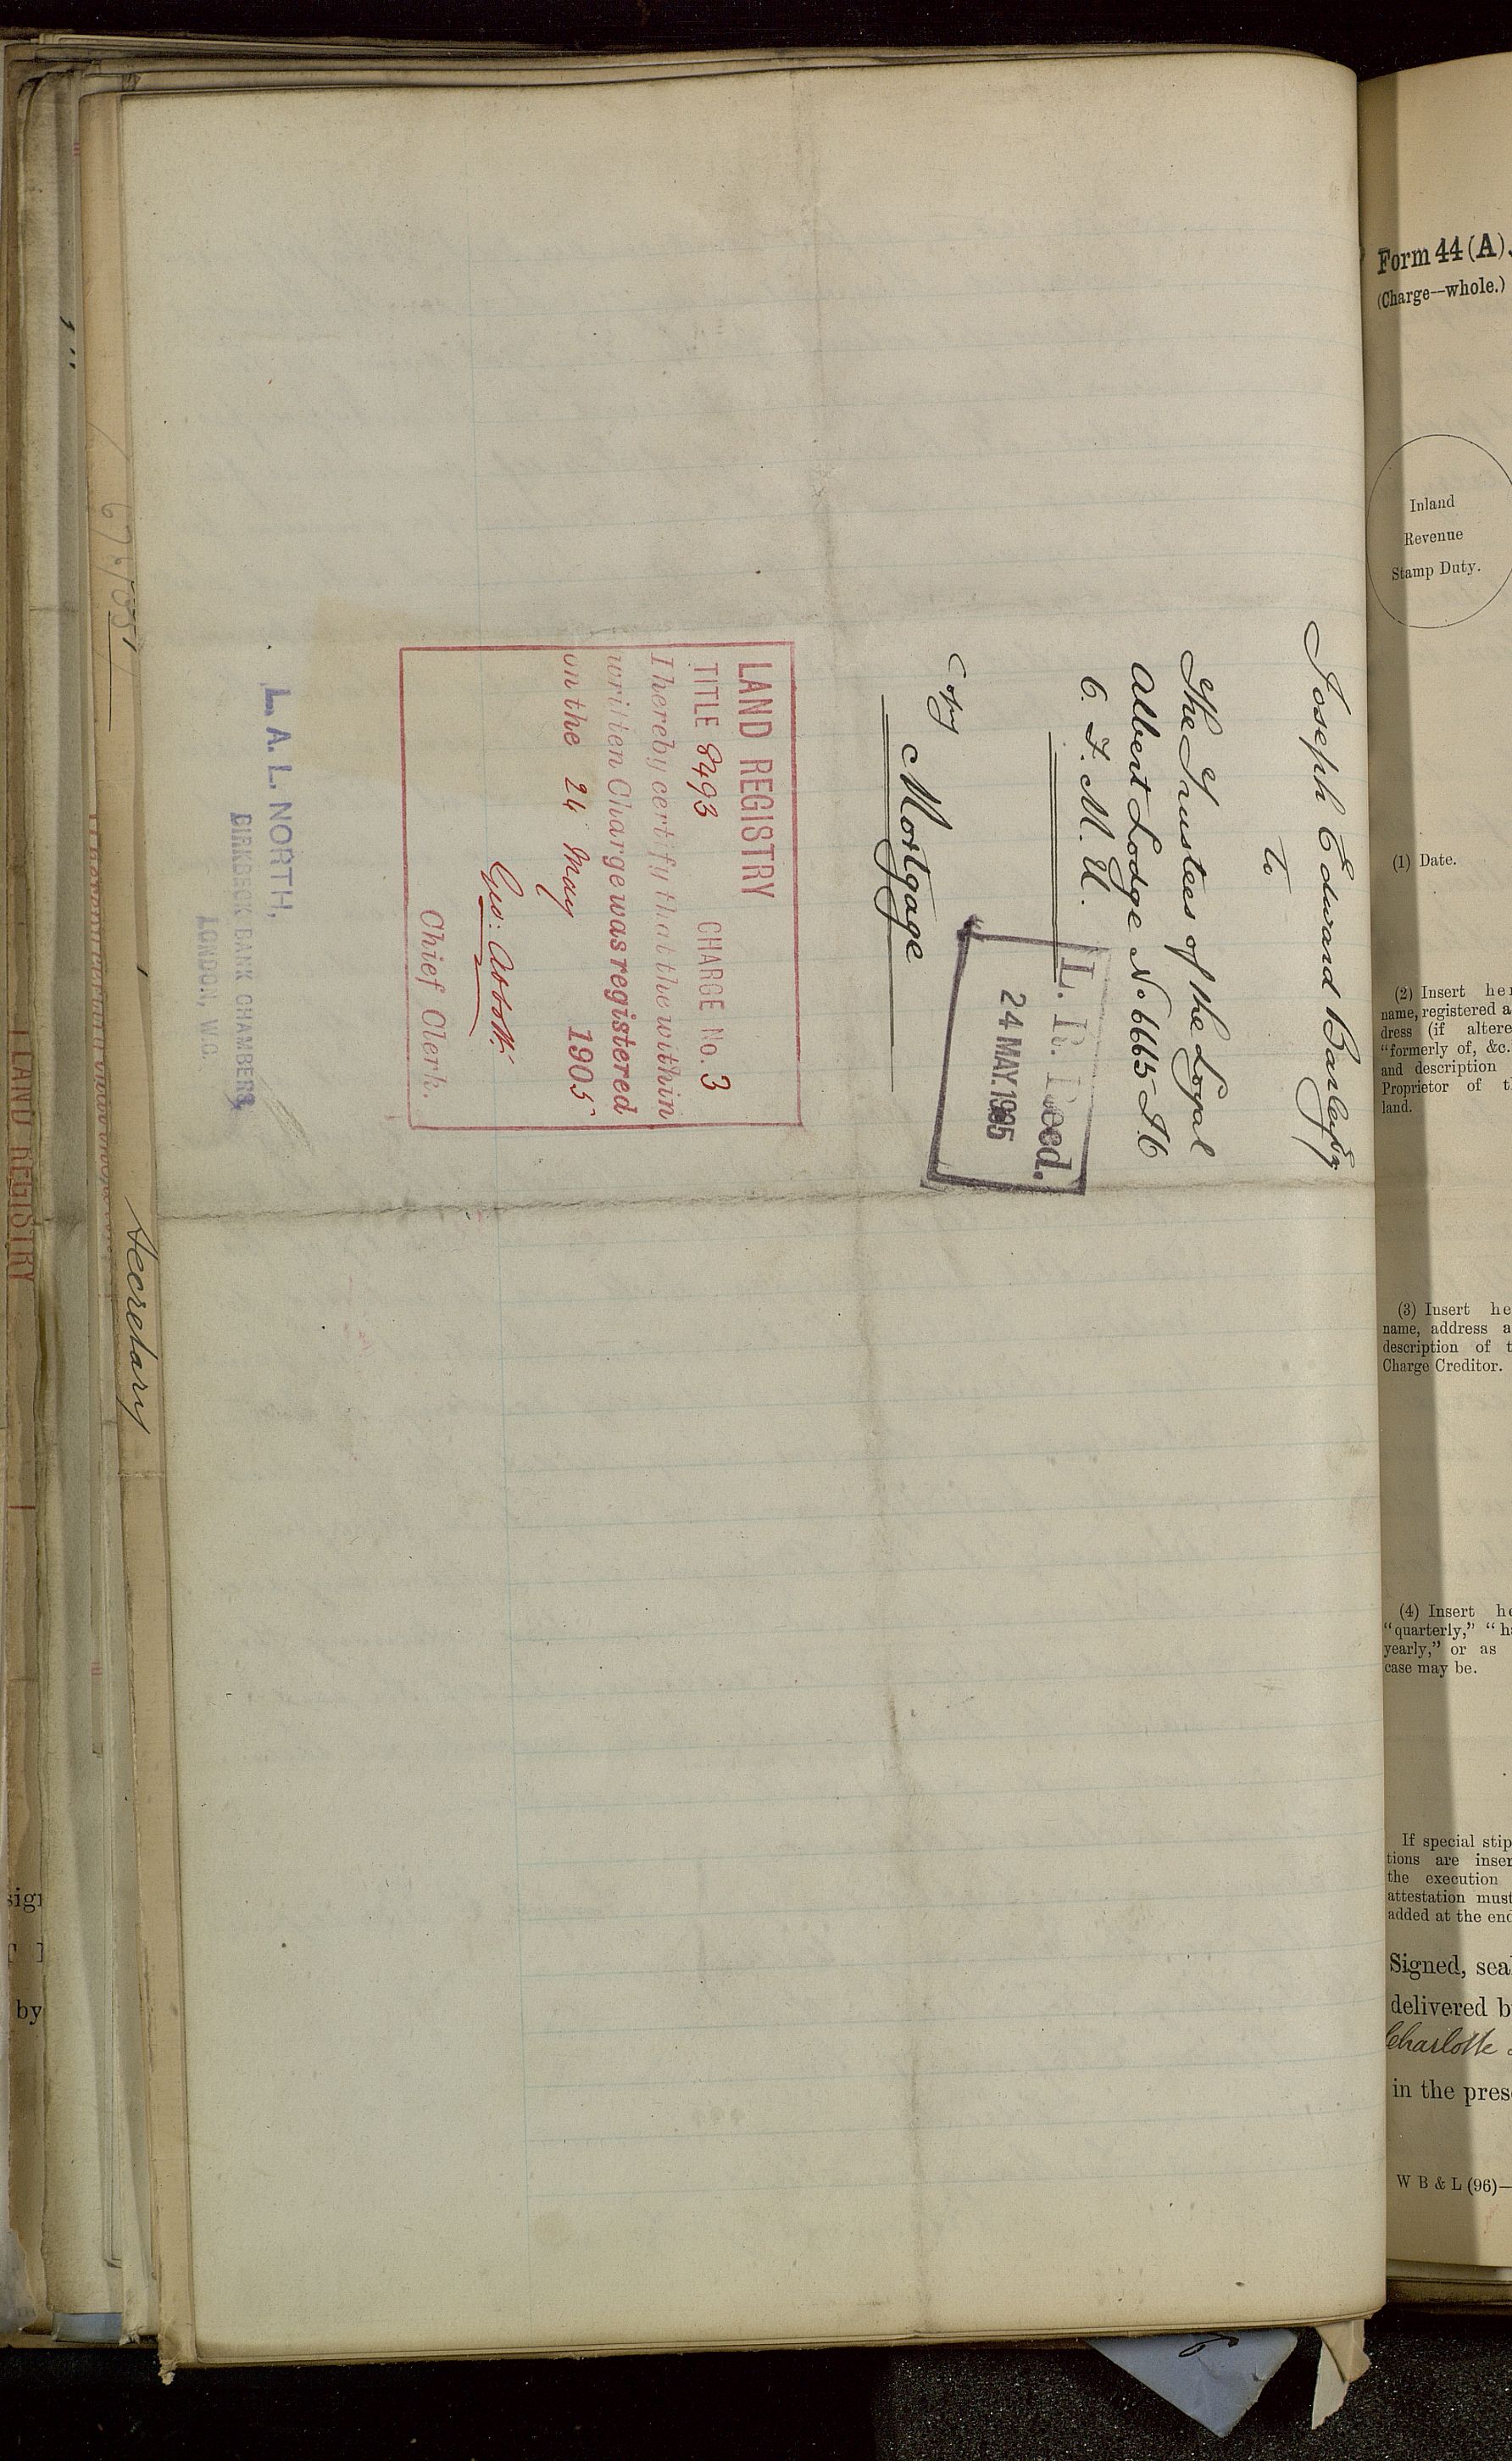 Joseph Edward Barley Esq
to
The Trustees of the Loyal
Albert Lodge No 6665 I.O
O. F. M. U.
L. R. Recd.
24 MAY. 1905
Copy
Mortgage
LAND REGISTRY
TITLE 8493 CHARGE No. 3
I hereby certify that the within
written Charge was registered
on the 24 May 1905
Geo: Abbott
Chief Clerk.
L. A. L. NORTH,
BIRKBECK BANK CHAMBERS,
LONDON, W.C.
Secretary
LAND REGISTRY
by
Form 44 (A).
(Charge—whole.)
Inland
Revenue
Stamp Duty.
(1) Date.
(2) Insert
name, registered
dress (if
“formerly of, &c.
and description
Proprietor of
land.
(3) Insert
name, address
description of
Charge Creditor.
(4) Insert
“quarterly,”
yearly,” or as
case may be.
If special
tions are
the execution
attestation must
added at the end
Signed,
delivered
Charlotte
in the
W B & L (96)—